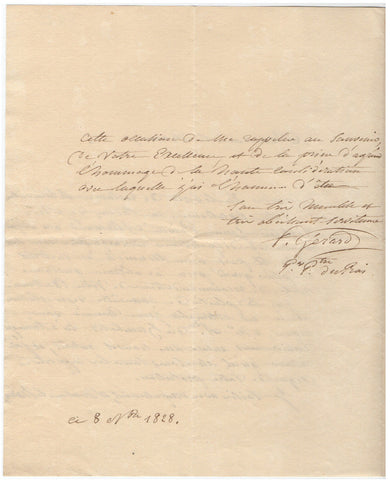 cette occasion de me rappeler au souvenir
de Votre Excellence et de la prier d'agréer
l'hommage de la haute considération
avec laquelle j'ai l'honneur d'être
Son très humble et
très obéissant serviteur
F. Gérard
Pr. Ptre du Roi
ce 8 Nbre 1828.